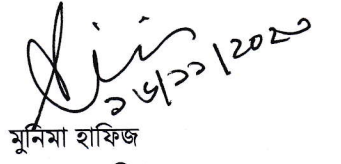 ১৬/১১/২০২০
মুনিমা হাফিজ